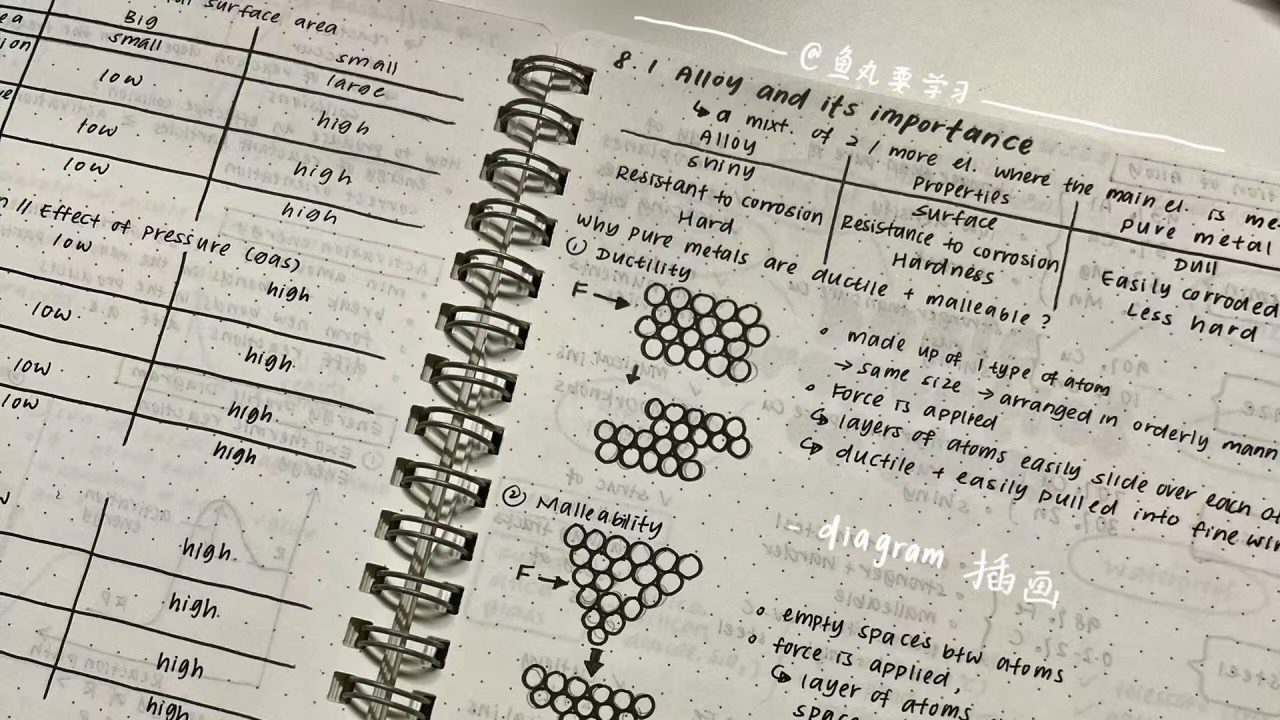 surface area
Big
small
small
large
low
high
low
high
low
high
// Effect of pressure (Gas)
low
high
low
high
low
high
low
high
high
high
high
high
@鱼丸要学习
8.1 Alloy and its importance
↳ a mixt. of 2 / more el. where the main el. is me
Alloy
Properties
Pure metal
Shiny
Surface
Dull
Resistant to corrosion
Resistance to corrosion
Easily corroded
Hard
Hardness
Less hard
Why pure metals are ductile + malleable?
① Ductility
F →
• made up of 1 type of atom
→ same size → arranged in orderly mann
• Force is applied
↳ layers of atoms easily slide over each ot
↳ ductile + easily pulled into fine wir
② Malleability
F →
- diagram 插画
• empty spaces btw atoms
• force is applied,
↳ layer of atoms